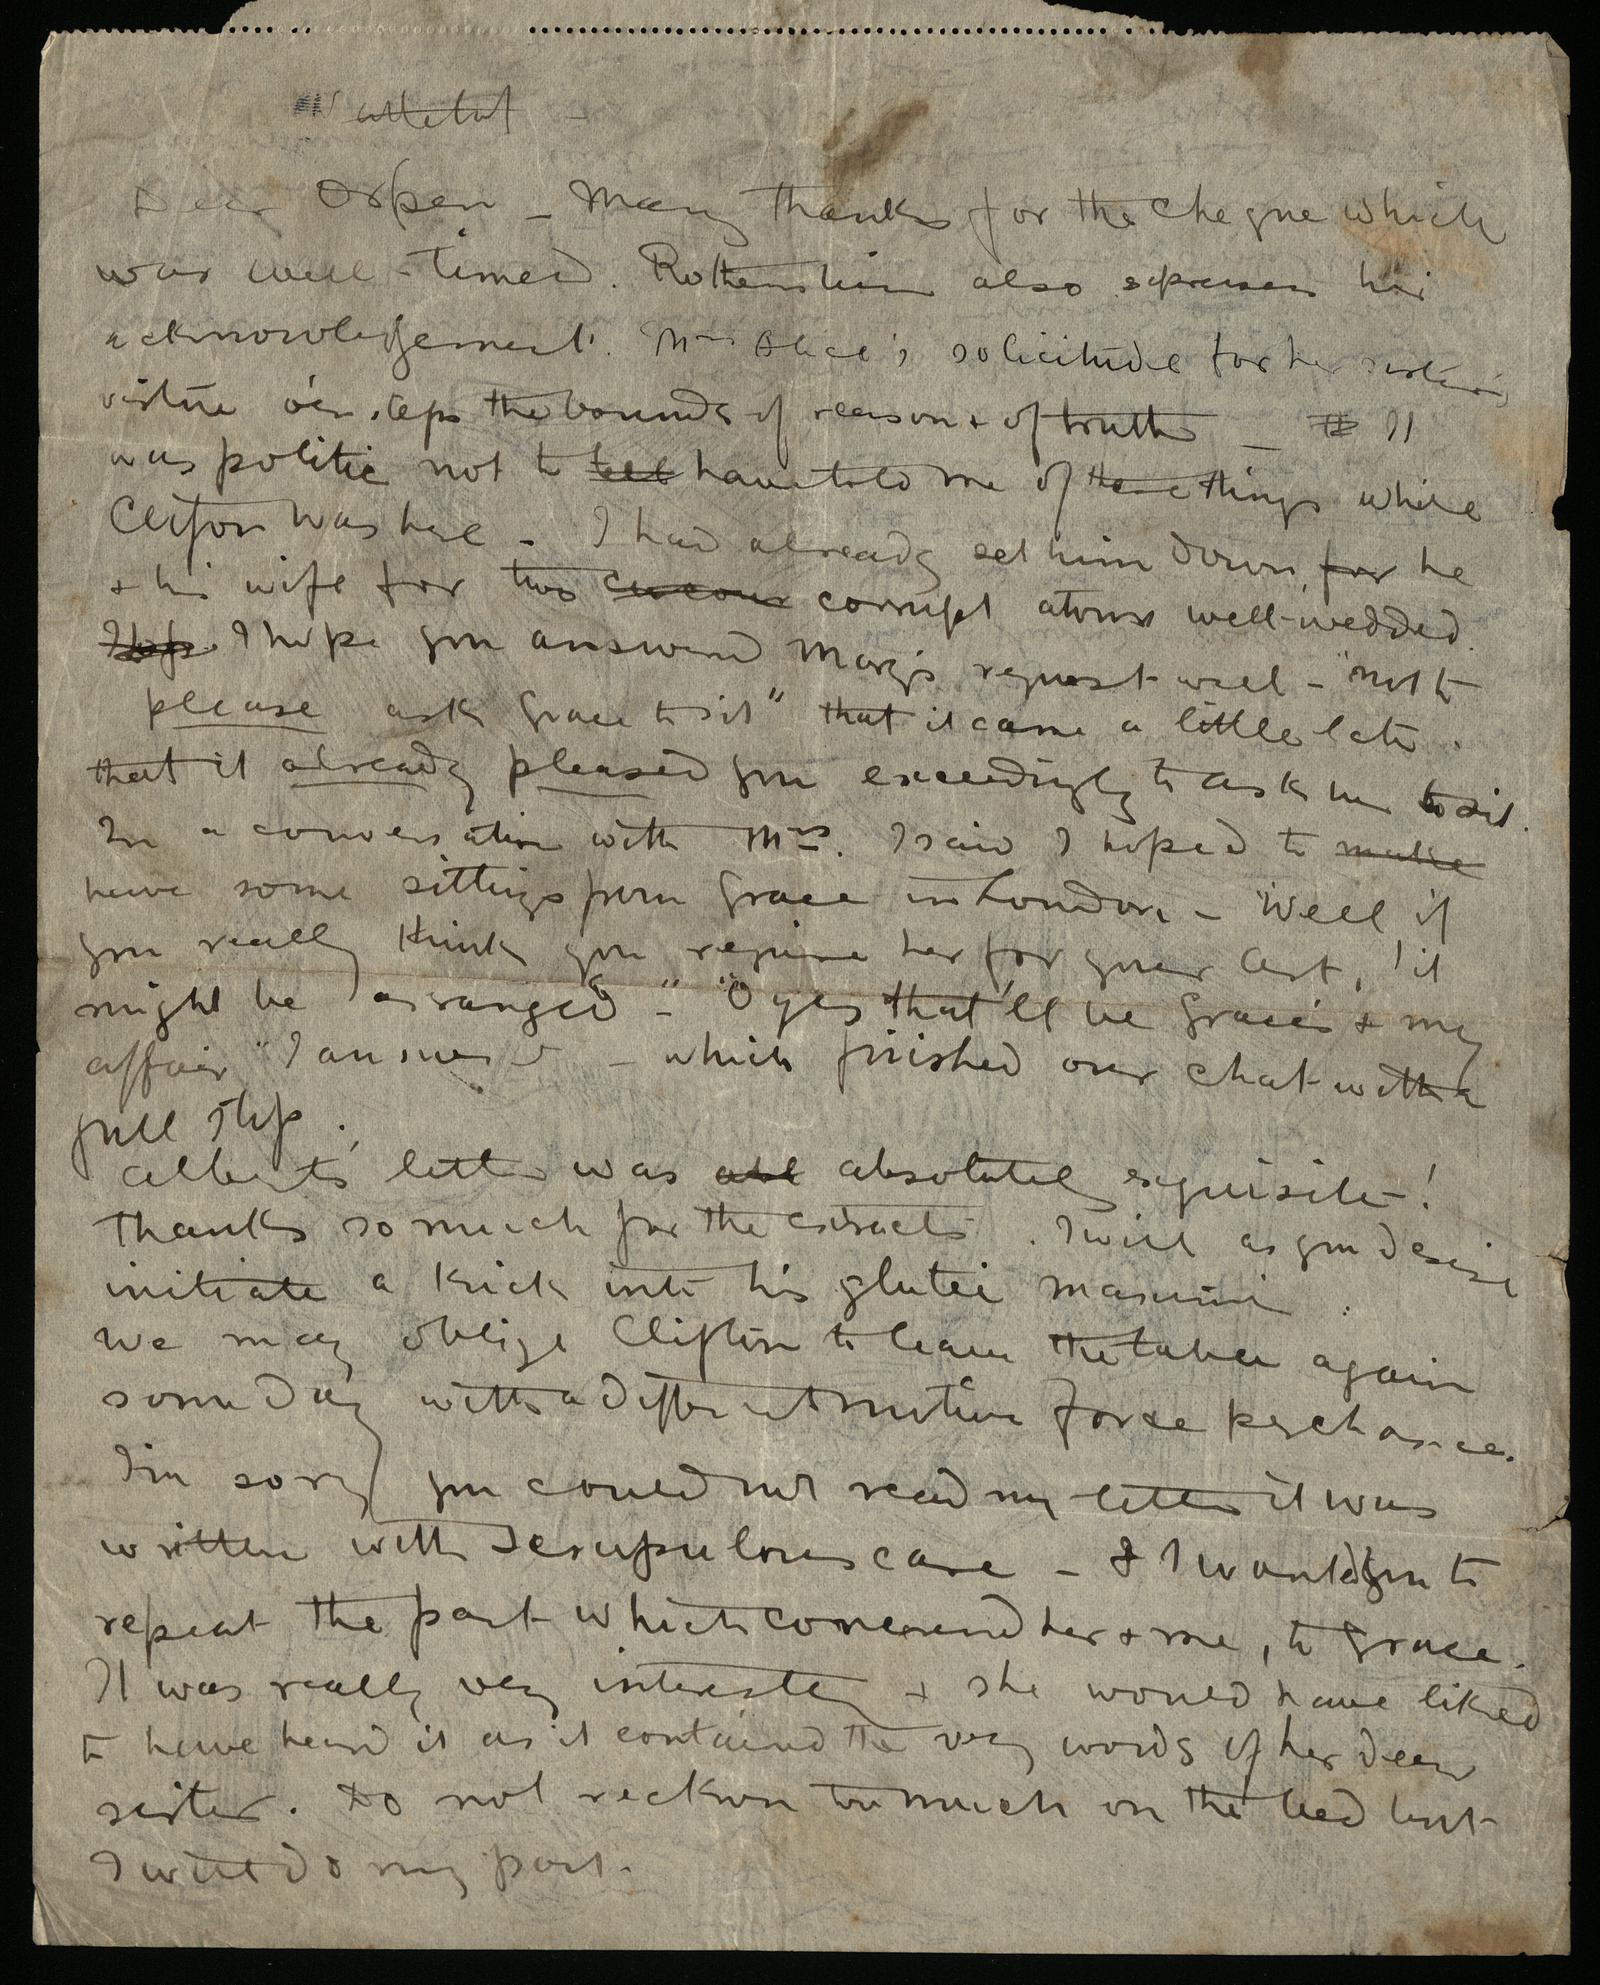 Vattetot
Dear Orpen – Many thanks for the cheque which
was well-timed. Rothenstein also expresses his
acknowledgement. Mrs Alice's solicitude for her sister's
virtue o'ersteps the bounds of reason & of truth – It
was politic not to tell have told me of these things while
Clifton was here – I had already set him down, for he
& his wife for two curious corrupt atoms well-wedded.
I hope I hope you answered Mary's request well – "not to
please ask Grace to sit" that it came a little late.
that it already pleased you exceedingly to ask her to sit.
In a conversation with Mrs. I said I hoped to make
have some sittings from Grace in London – "Well if
you really think you require her for your Art, it
might be arranged –" "O yes that'll be Grace's & my
affair" I answered – which finished our chat with a
full stop.
Albert's letter was abl absolutely exquisite!
Thanks so much for the extracts. I will as you desire
initiate a kick into his glutei maximi.
We may oblige Clifton to leave the table again
some day with a different motive force perchance.
I'm sorry you could not read my letter it was
written with scrupulous care – & I wanted you to
repeat the part which concerned her & me, to Grace.
It was really very interesting & she would have liked
to have heard it as it contained the very words of her dear
sister. Do not reckon too much on the bed but
I will do my part.